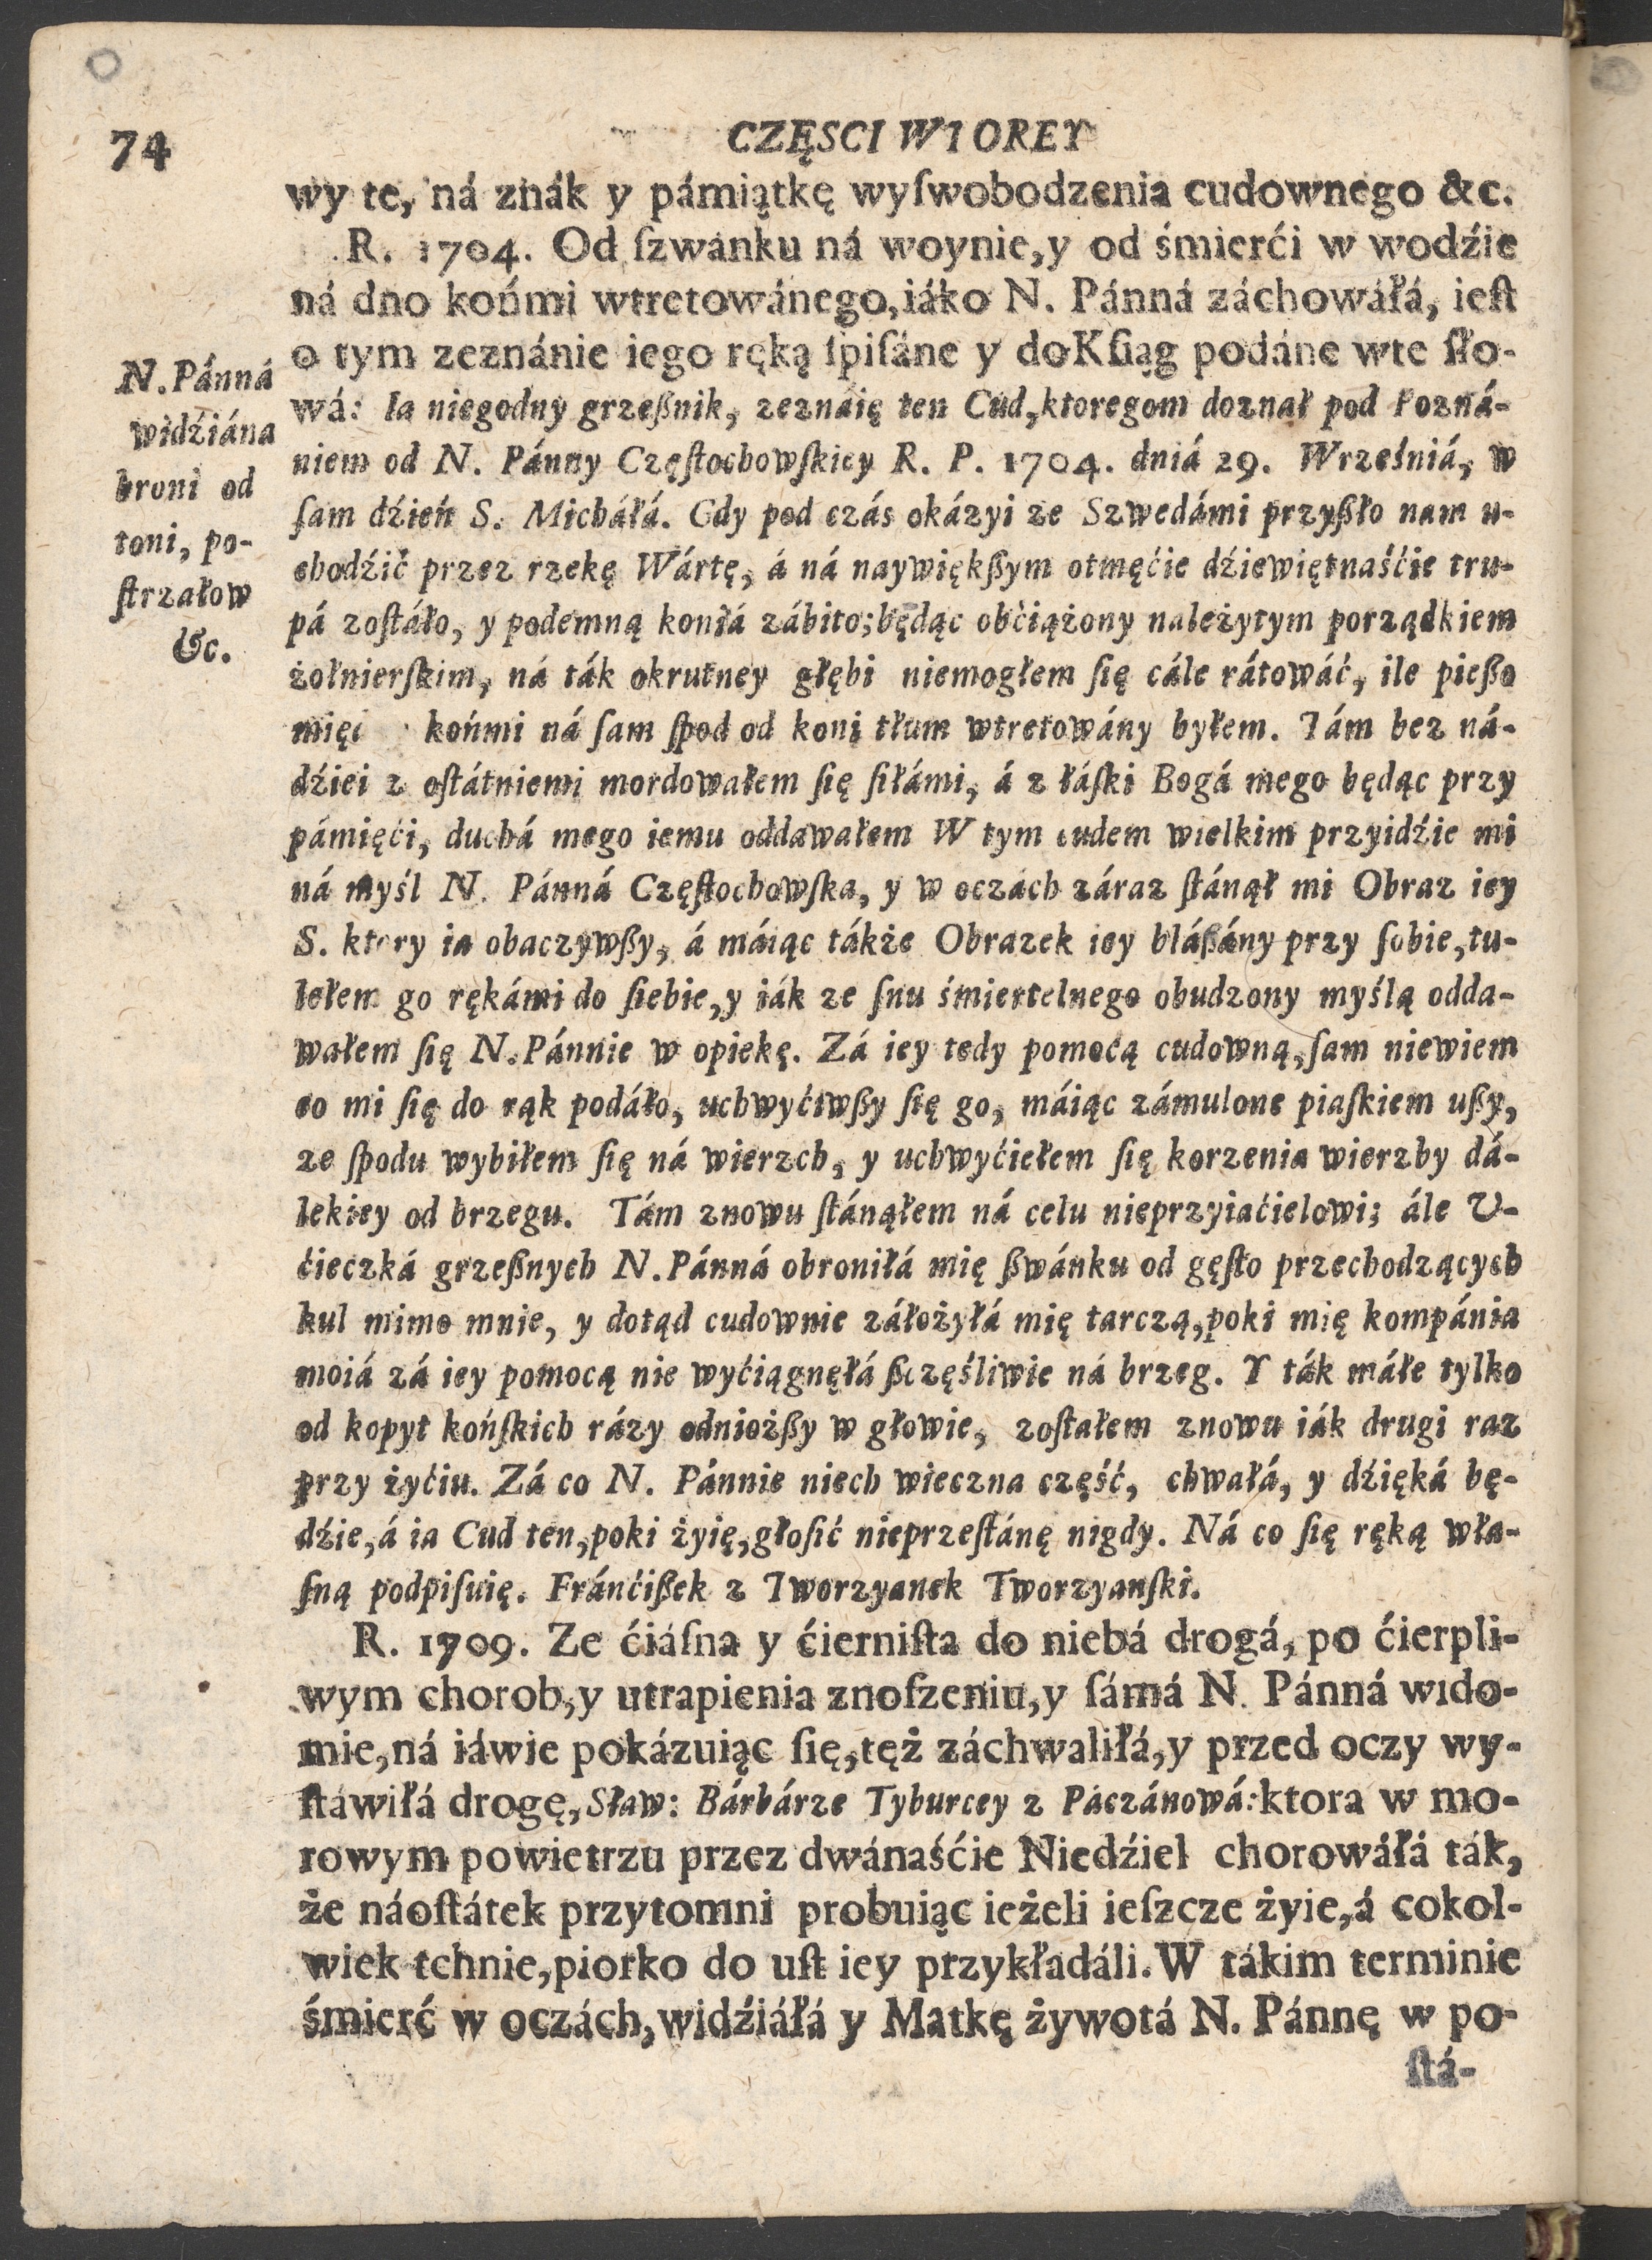 74
CZĘSCI WTOREY
wy te, ná znák y pámiątkę wyſwobodzenia cudownego &c.
R. 1704. Od ſzwanku ná woynie, y od śmierći w wodźie
ná dno końmi wtretowánego, iáko N. Pánná záchowáłá, ieſt
o tym zeznánie iego ręką ſpiſáne y do Kſiąg podáne w te ſło-
wá: Ia niegodny grzeßnik, zeznáię ten Cud, ktoregom doznał pod Pozná-
niem od N. Pánny Częſtochowſkiey R. P. 1704. dniá 29. Wrześniá, w
ſam dźień S. Micháłá. Gdy pod czás okázyi ze Szwedámi przyßło nam u-
chodźić przez rzekę Wártę, á ná naywiękßym otmęćie dźiewiętnaśćie tru-
pá zoſtáło, y podemną koniá zábito; będąc obćiążony należytym porządkiem
żołnierſkim, ná ták okrutney głębi niemogłem ſię cále rátowáć, ile pießo
końmi ná ſam ſpod od koni tłum wtretowány byłem. Tám bez ná-
dźiei z oſtátniemi mordowałem ſię ſiłámi, á z łáſki Bogá mego będąc przy
pámięći, duchá mego iemu oddawałem W tym cudem wielkim przyidźie mi
ná myśl N. Pánná Częſtochowſka, y w oczách záraz ſtánął mi Obraz iey
S. ktory ia obaczywßy, á máiąc tákże Obrazek iey bláßány przy ſobie, tu-
lełem go rękámi do ſiebie, y iák ze ſnu śmiertelnego obudzony myślą odda-
wałem ſię N. Pánnie w opiekę. Zá iey tedy pomocą cudowną, ſam niewiem
co mi ſię do rąk podáło, uchwyćiwßy ſię go, máiąc zámulone piaſkiem ußy,
ze ſpodu wybiłem ſię ná wierzch, y uchwyćiełem ſię korzenia wierzby dá-
lekiey od brzegu. Tám znowu ſtánąłem ná celu nieprzyiaćielowi; ále U-
ćieczká grzeßnych N. Pánná obroniłá mię ßwánku od gęſto przechodzących
kul mimo mnie, y dotąd cudownie záłożyłá mię tarczą, poki mię kompánia
moiá zá iey pomocą nie wyćiągnęłá ßczęśliwie ná brzeg. Y ták máłe tylko
od kopyt końſkich rázy odniożßy w głowie, zoſtałem znowu iák drugi raz
przy żyćiu. Zá co N. Pánnie niech wieczna część, chwałá, y dźięká bę-
dźie, á ia Cud ten, poki żyię, głoſić nieprzeſtánę nigdy. Ná co ſię ręką wła-
ſną podpiſuię. Fránćißek z Tworzyanek Tworzyanſki.
R. 1709. Ze ćiáſna y ćierniſta do niebá drogá, po ćierpli-
wym chorob, y utrapienia znoſzeniu, y ſámá N. Pánná wido-
mie, ná iáwie pokázuiąc ſię, tęż záchwaliłá, y przed oczy wy-
ſtáwiłá drogę, Sław: Bárbárze Tyburcey z Páczánowá: ktora w mo-
rowym powietrzu przez dwánaśćie Niedźiel chorowáłá ták,
że náoſtátek przytomni probuiąc ieżeli ieſzcze żyie, á cokol-
wiek tchnie, piorko do uſt iey przykładáli. W tákim terminie
śmierć w oczách, widźiáłá y Matkę żywotá N. Pánnę w po-
ſtá-
N. Pánná
widźiána
broni od
toni, po-
ſtrzałow
&c.